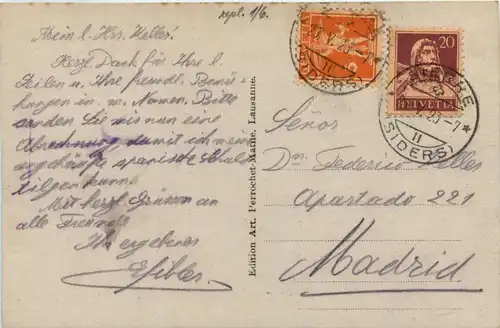 repl. 1/6.
Mein l. Hrr. Keller!
Herzl. Dank für Ihre l.
Zeilen u. Ihre freundl. Bemü-
hungen in m. Namen. Bitte
senden Sie mir nun eine
Abrechnung damit ich meine
spanische Schuld
tilgen kann.
Mit herzl. Grüssen an
alle Freunde
Ihr ergebener
Edition Art. Perrochet-Matile, Lausanne.
HELVETIA
20
HELVETIA
SIERRE
(SIDERS)
II
SIERRE
(SIDERS)
II
Señor
Dn. Federico Keller
Apartado 221
Madrid